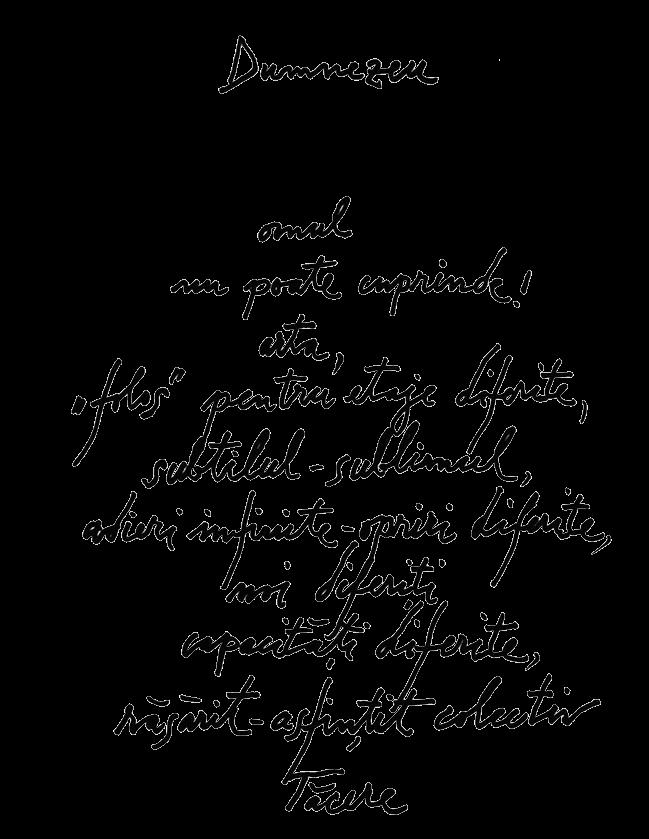 Dumnezeu
omul
nu poate cuprinde!
arta,
"folos" pentru etaje diferite,
subtilul - sublimul,
adieri infinite - opriri diferite,
noi diferiți
capacități diferite,
răsărit - asfințit colectiv
Tăcere